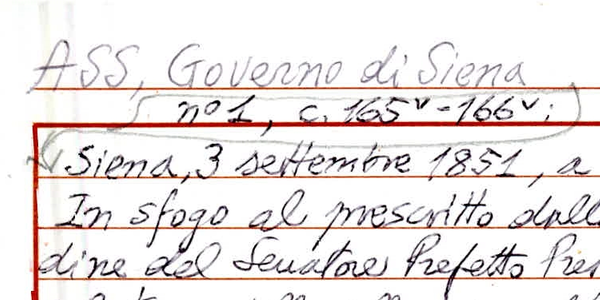 ASS, Governo di Siena
n° 1, c. 165v - 166v:
Siena, 3 settembre 1851, a
In sfogo al prescritto dall
dine del Senatore Prefetto Pre